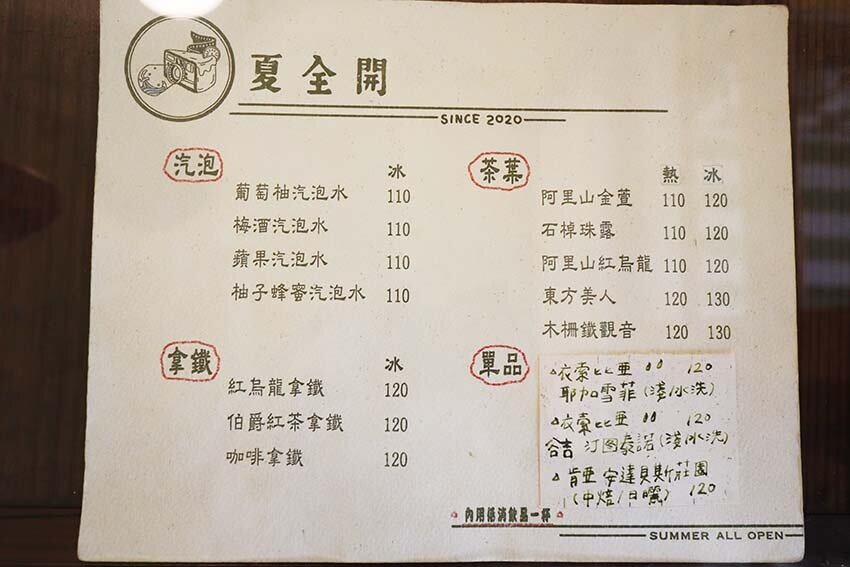 夏全開
SINCE 2020
汽泡 冰
葡萄柚汽泡水 110
梅酒汽泡水 110
蘋果汽泡水 110
柚子蜂蜜汽泡水 110
拿鐵 冰
紅烏龍拿鐵 120
伯爵紅茶拿鐵 120
咖啡拿鐵 120
茶葉 熱 冰
阿里山金萱 110 120
石棹珠露 110 120
阿里山紅烏龍 110 120
東方美人 120 130
木柵鐵觀音 120 130
單品
衣索比亞 120
耶加雪菲(淺/水洗)
衣索比亞 120
谷吉 汀图泰諾(淺/水洗)
肯亞 安達貝斯莊園
(中焙/日曬) 120
內用低消飲品一杯
SUMMER ALL OPEN